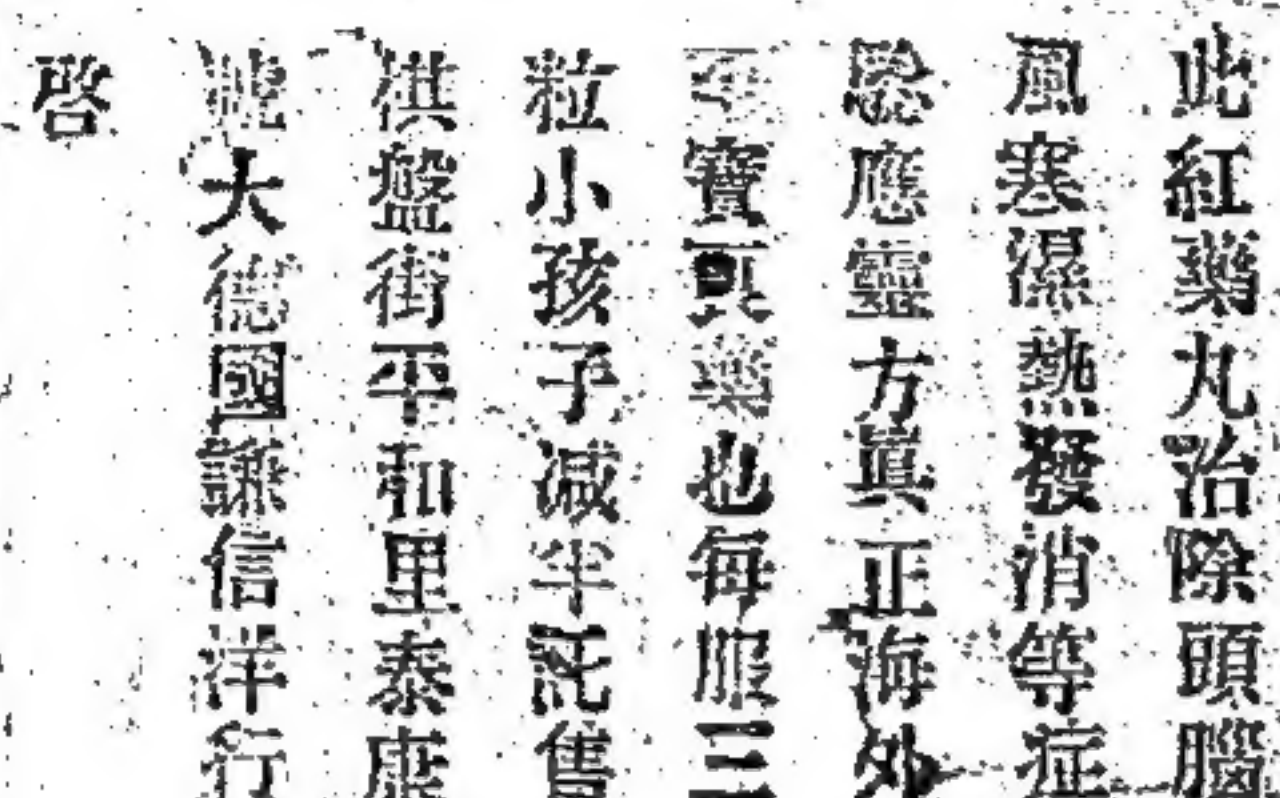 此紅藥丸治除頭腦
風寒濕熱發消等症
應靈方眞正海外
寶可藥也每服三
粒小孩子减半託售
供盤街平和里泰康
號大德國謙信洋行
啓